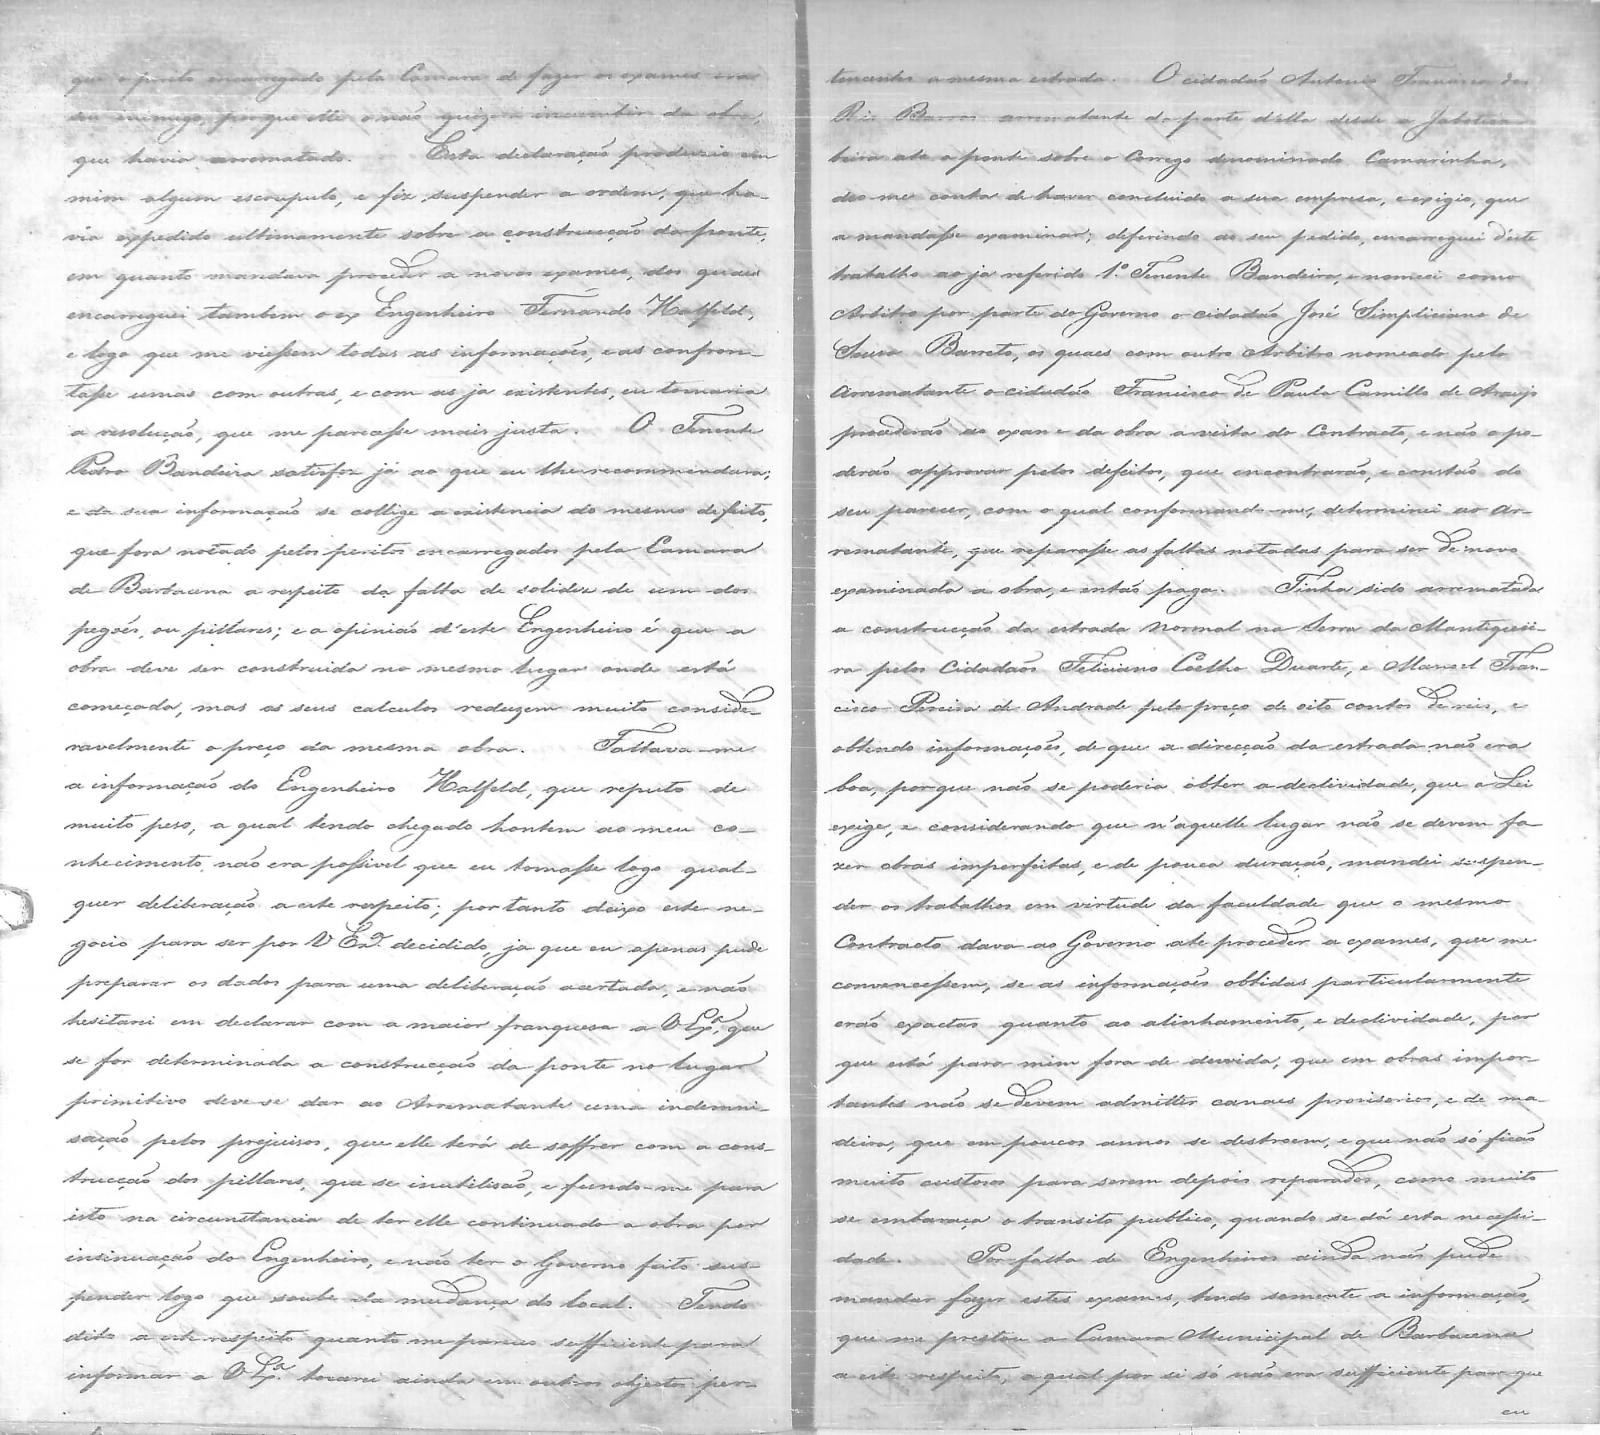 que o perito encarregado pela Camara de fazer os exames era
seu enimigo, porque elle o não quizera incumbir da obra,
que havia arrematado. Esta declaração produzio em
mim algum escrupulo, e fiz suspender a ordem, que ha-
via expedido ultimamente sobre a construcção da ponte,
em quanto mandava proceder a novos exames, dos quaes
encarreguei tambem o ex Engenheiro Fernando Halfeld,
e logo que me viessem todas as informações, e as confron-
tasse umas com outras, e com as ja existentes, eu tomaria
a resolução, que me parecesse mais justa. O Tenente
Pedro Bandeira satisfez já ao que eu lhe recommendara;
e da sua informação se collige a existencia do mesmo defeito,
que fora notado pelos peritos encarregados pela Camara
de Barbacena a respeito da falta de solidez de um dos
pegões, ou pillares; e a opinião d'este Engenheiro é que a
obra deve ser construida no mesmo lugar onde está
começada, mas os seus calculos reduzem muito conside-
ravelmente o preço da mesma obra. Faltava-me
a informação do Engenheiro Halfeld, que reputo de
muito peso, a qual tendo chegado hontem ao meu co-
nhecimento, não era possivel que eu tomasse logo qual-
quer deliberação a este respeito; por tanto deixo este ne-
gocio para ser por V Exª. decidido, ja que eu apenas pude
preparar os dados para uma deliberação acertada, e não
hesitarei em declarar com a maior franquesa a V Exª, que
se for determinada a construcção da ponte no lugar
primitivo deve-se dar ao Arrematante uma indemni-
sação pelos prejuisos, que elle terá de soffrer com a cons-
trucção dos pillares, que se inutilisão, e fundo-me para
isto na circunstancia de ter elle continuado a obra por
insinuação do Engenheiro, e não ter o Governo feito sus-
pender logo que soube da mudança do local. Tendo
dito a este respeito quanto me pareceo sufficiente para
informar a V Exª. tocarei ainda em outros objectos per-
tencentes a mesma estrada. O cidadão Antonio Francisco dos
Rios Barros arrematante da parte d'ella desde a Jabotica-
beira até a ponte sobre o Corrego denominado Camarinha,
deo-me conta de haver concluido a sua empresa, e exigio, que
a mandasse examinar; deferindo ao seu pedido, encarreguei d'este
trabalho ao ja referido 1.º Tenente Bandeira, e nomeei como
Arbitro por parte do Governo o cidadão José Simpliciano de
Sousa Barreto, os quaes com outro Arbitro nomeado pelo
Arrematante o cidadão Francisco de Paula Camillo de Araujo
procederão ao exame da obra a vista do Contracto, e não a po-
derão approvar pelos defeitos, que encontrarão, e constão do
seu parecer, com o qual conformando-me, determinei ao Ar-
rematante, que reparasse as faltas notadas para ser de novo
examinada a obra, e então paga. Tinha sido arrematada
a construcção da estrada normal na Serra da Mantiquei-
ra pelos Cidadãos Feliciano Coelho Duarte, e Manoel Fran-
cisco Pereira de Andrade pelo preço de oito contos de reis, e
obtendo informações, de que a direcção da estrada não era
boa, porque não se poderia obter a declividade, que a Lei
exige, e considerando que n'aquelle lugar não se devem fa-
zer obras imperfeitas, e de pouca duração, mandei suspen-
der os trabalhos em virtude da faculdade que o mesmo
Contracto dava ao Governo até proceder a exames, que me
convencessem, se as informações obtidas particularmente
erão exactas quanto ao alinhamento, e declividade, por
que está para mim fora de duvida, que em obras impor-
tantes não se devem admittir canaes provisorios, e de ma-
deira, que em poucos annos se destroem, e que não só ficão
muito custosos para serem depois reparados, como muito
se embaraça o transito publico, quando se dá esta necessi-
dade. Por falta de Engenheiros ainda não pude
mandar fazer estes exames, tendo somente a informação,
que me prestou a Camara Municipal de Barbacena
a este respeito, a qual por si só não era sufficiente para que
eu